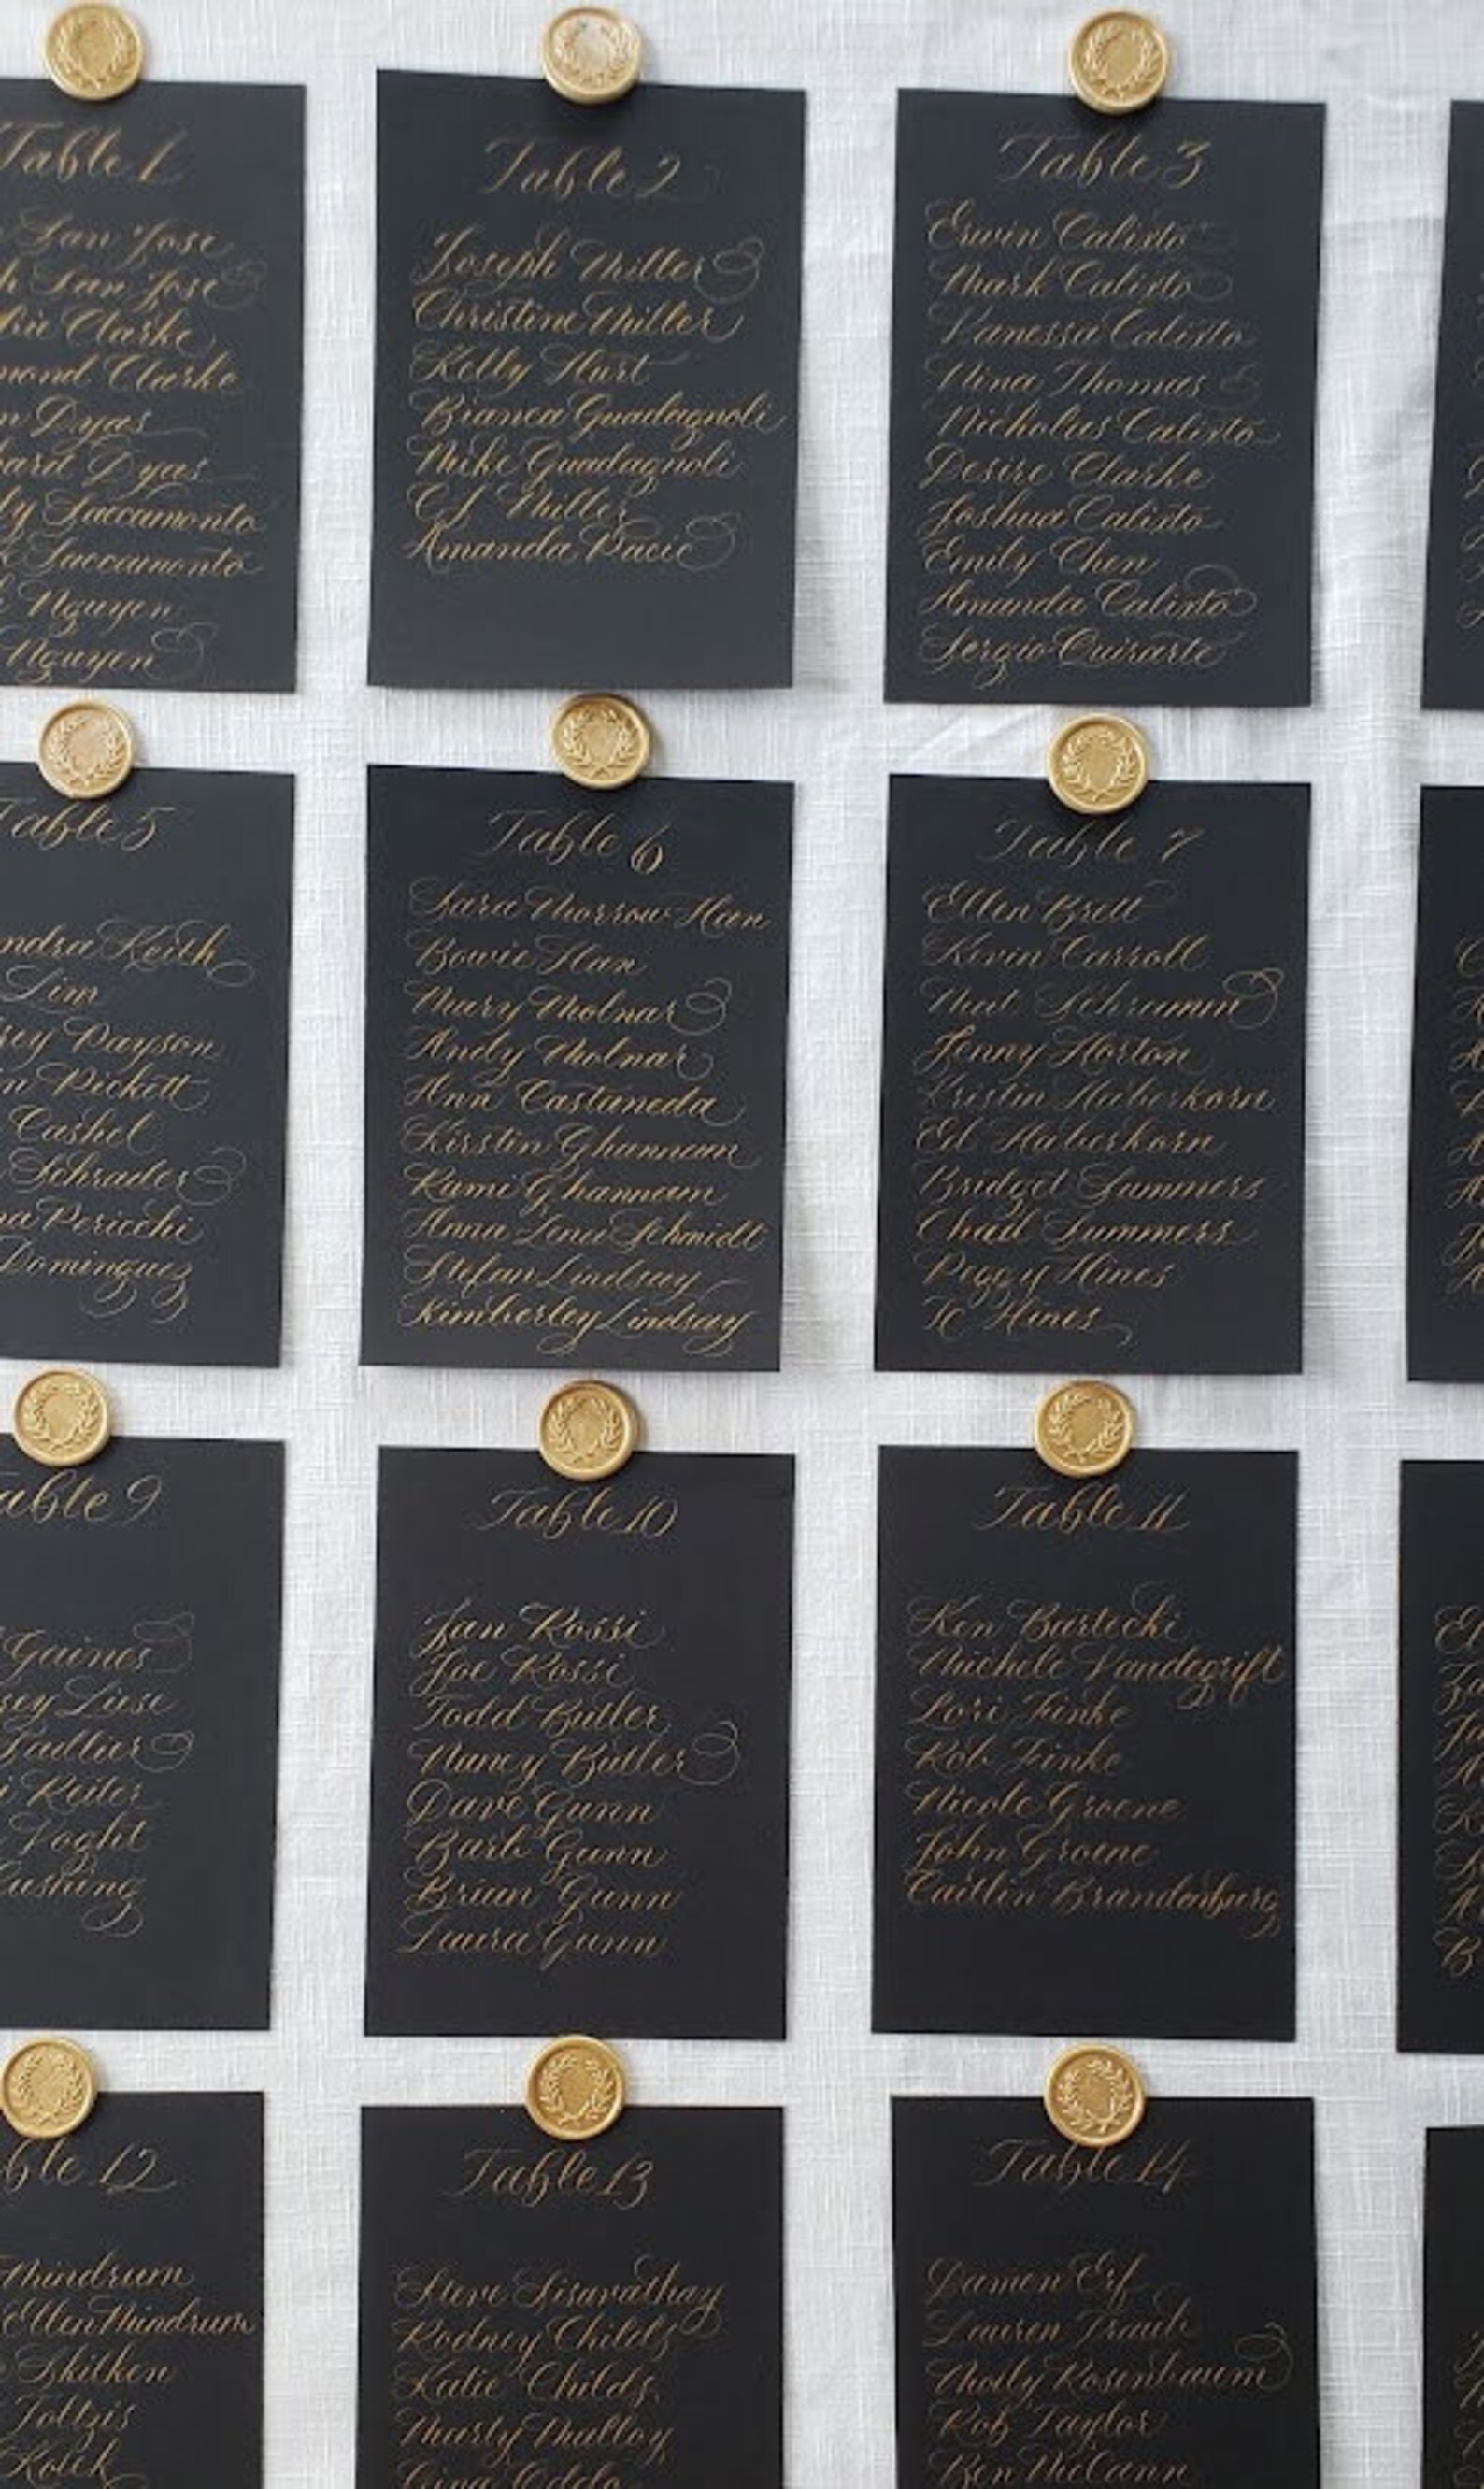 Table 1
San Jose
San Jose
Clarke
Clarke
Dyas
Dyas
Saccamonto
Saccamonto
Nguyen
Nguyen
Table 2
Joseph Miller
Christine Miller
Kelly Hurt
Bianca Guadagnoli
Mike Guadagnoli
CJ Miller
Amanda Pacic
Table 3
Erwin Calixto
Mark Calixto
Vanessa Calixto
Nina Thomas
Nicholas Calixto
Desire Clarke
Joshua Calixto
Emily Chen
Amanda Calixto
Sergio Quirarte
Table 5
Keith
Lim
Payson
Pickett
Cashel
Schrader
Pericchi
Dominguez
Table 6
Sara Morrow Han
Bowie Han
Mary Molnar
Andy Molnar
Ann Castaneda
Kirstin Ghannam
Rami Ghannam
Anna Schmidt
Stefan Lindsay
Kimberley Lindsay
Table 7
Ellen Brett
Kevin Carroll
Schramm
Jenny Horton
Kristin Haberkorn
Ed Haberkorn
Bridget Summers
Chad Summers
Peggy Hines
Hines
Table 9
Gaines
Liese
Sadlier
Reiter
Foght
Cushing
Table 10
Jan Rossi
Joe Rossi
Todd Butler
Nancy Butler
Dave Gunn
Barb Gunn
Brian Gunn
Laura Gunn
Table 11
Ken Bartecki
Michele Vandegrift
Lori Finke
Rob Finke
Nicole Groene
John Groene
Caitlin Brandenburg
12
Mindrum
Ellen Mindrum
Skilken
Toltzis
Table 13
Steve Sisavathay
Rodney Childs
Katie Childs
Marty Malloy
Gina
Table 14
Damen Erf
Lauren Traub
Molly Rosenbaum
Rob Taylor
Ben McCann